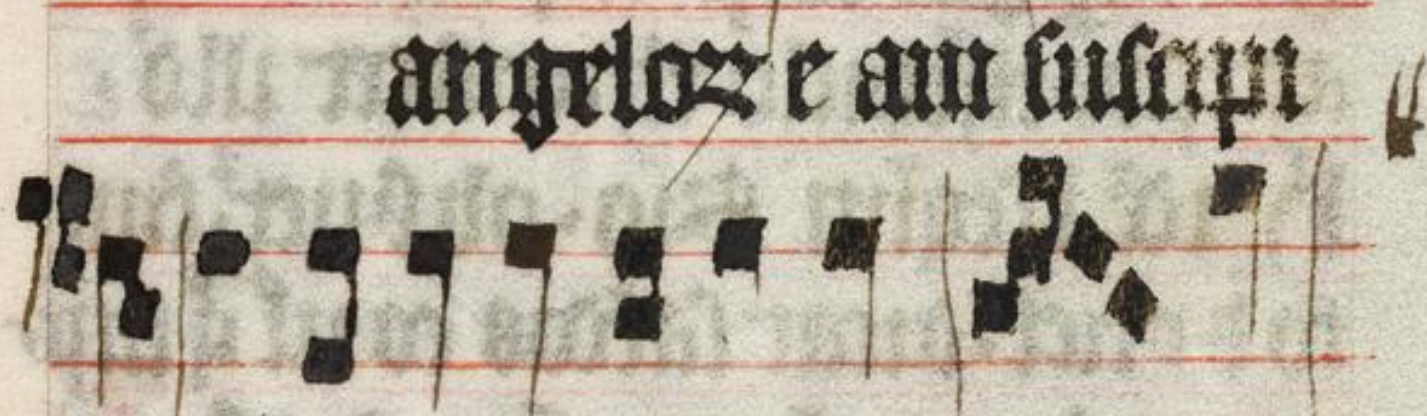 angeloꝝ e am suscipi